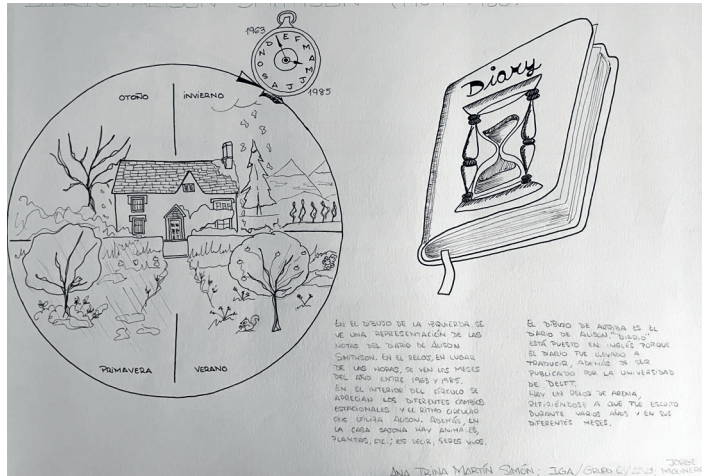 DIARIO: ALISON SMITHSON
1963
E F M A M J J A S O N D
1985
OTOÑO
INVIERNO
PRIMAVERA
VERANO
Diary
EN EL DIBUJO DE LA IZQUIERDA SE
VE UNA REPRESENTACIÓN DE LAS
NOTAS DEL DIARIO DE ALISON
SMITHSON. EN EL RELOJ, EN LUGAR
DE LAS HORAS, SE VEN LOS MESES
DEL AÑO ENTRE 1963 Y 1985.
EN EL INTERIOR DEL CÍRCULO SE
APRECIAN LOS DIFERENTES CAMBIOS
ESTACIONALES Y EL RITMO CIRCULAR
QUE UTILIZA ALISON. ADEMÁS, EN
LA CASA SAJONA HAY ANIMALES,
PLANTAS, ETC.; ES DECIR, SERES VIVOS.
EL DIBUJO DE ARRIBA ES EL
DIARIO DE ALISON. "DIARIO"
ESTÁ PUESTO EN INGLÉS PORQUE
EL DIARIO FUE LLEVADO A
TRADUCIR, ADEMÁS DE SER
PUBLICADO POR LA UNIVERSIDAD
DE DELFT.
HAY UN RELOJ DE ARENA,
REFIRIÉNDOSE A QUE FUE ESCRITO
DURANTE VARIOS AÑOS Y EN SUS
DIFERENTES MESES.
ANA TRINA MARTÍN SIMÓN; IGA/GRUPO C/
JORGE
MOLINERO